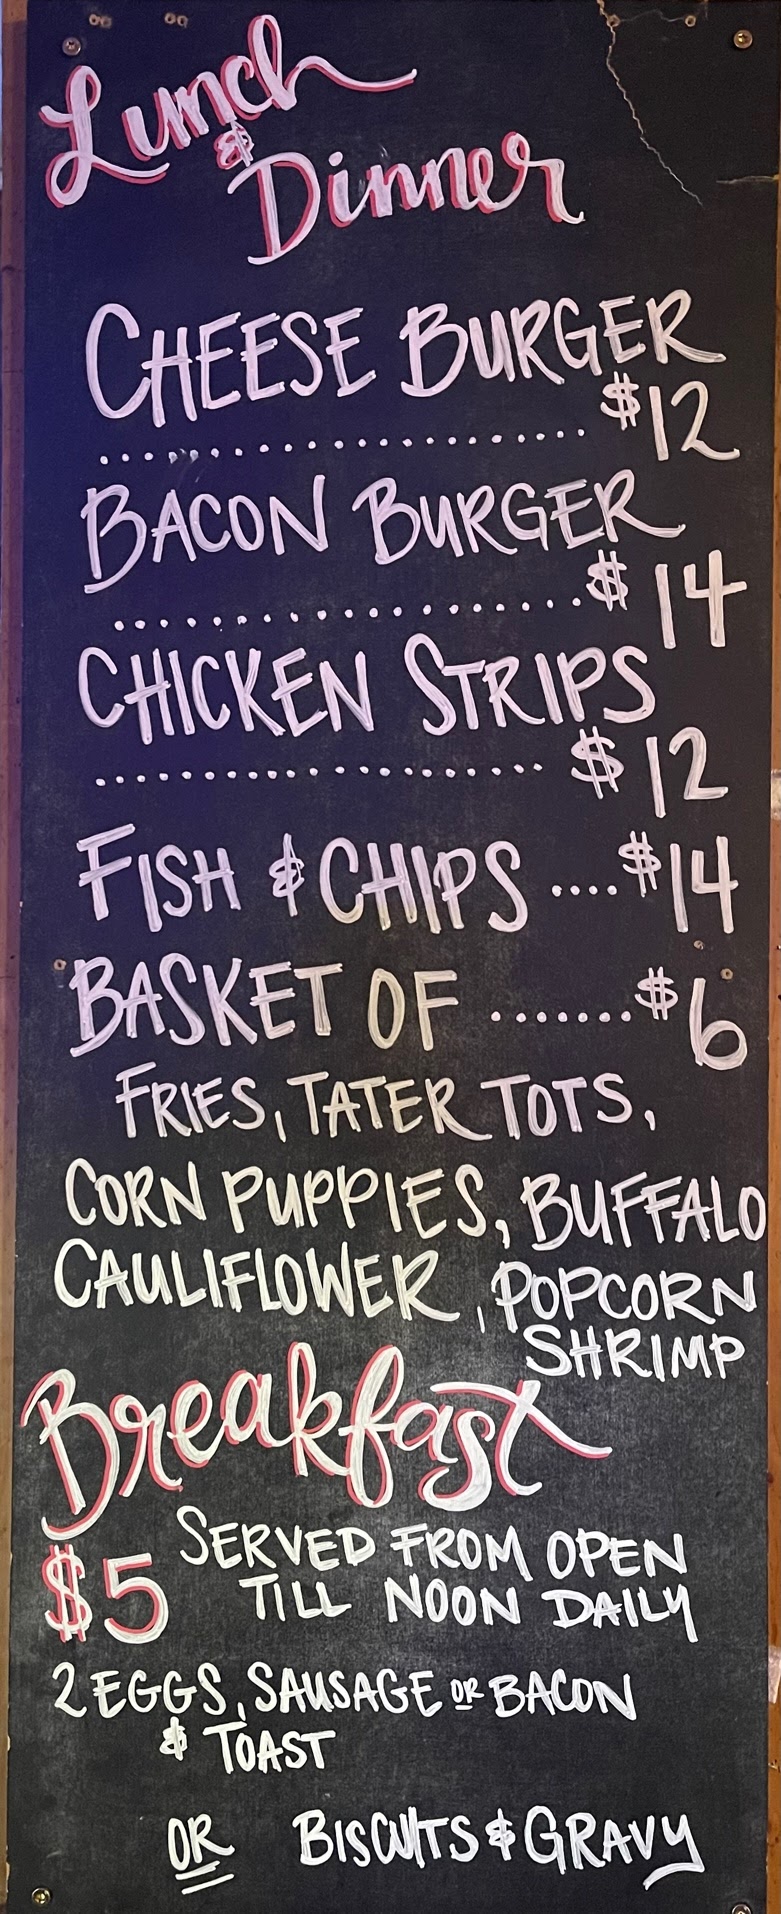 Lunch
&
Dinner
CHEESE BURGER
..................... $12
BACON BURGER
.................... $14
CHICKEN STRIPS
.................... $12
FISH & CHIPS ....$14
BASKET OF .......$6
FRIES, TATER TOTS,
CORN PUPPIES, BUFFALO
CAULIFLOWER, POPCORN
SHRIMP
Breakfast
$5 SERVED FROM OPEN
TILL NOON DAILY
2 EGGS, SAUSAGE OR BACON
& TOAST
OR BISCUITS & GRAVY